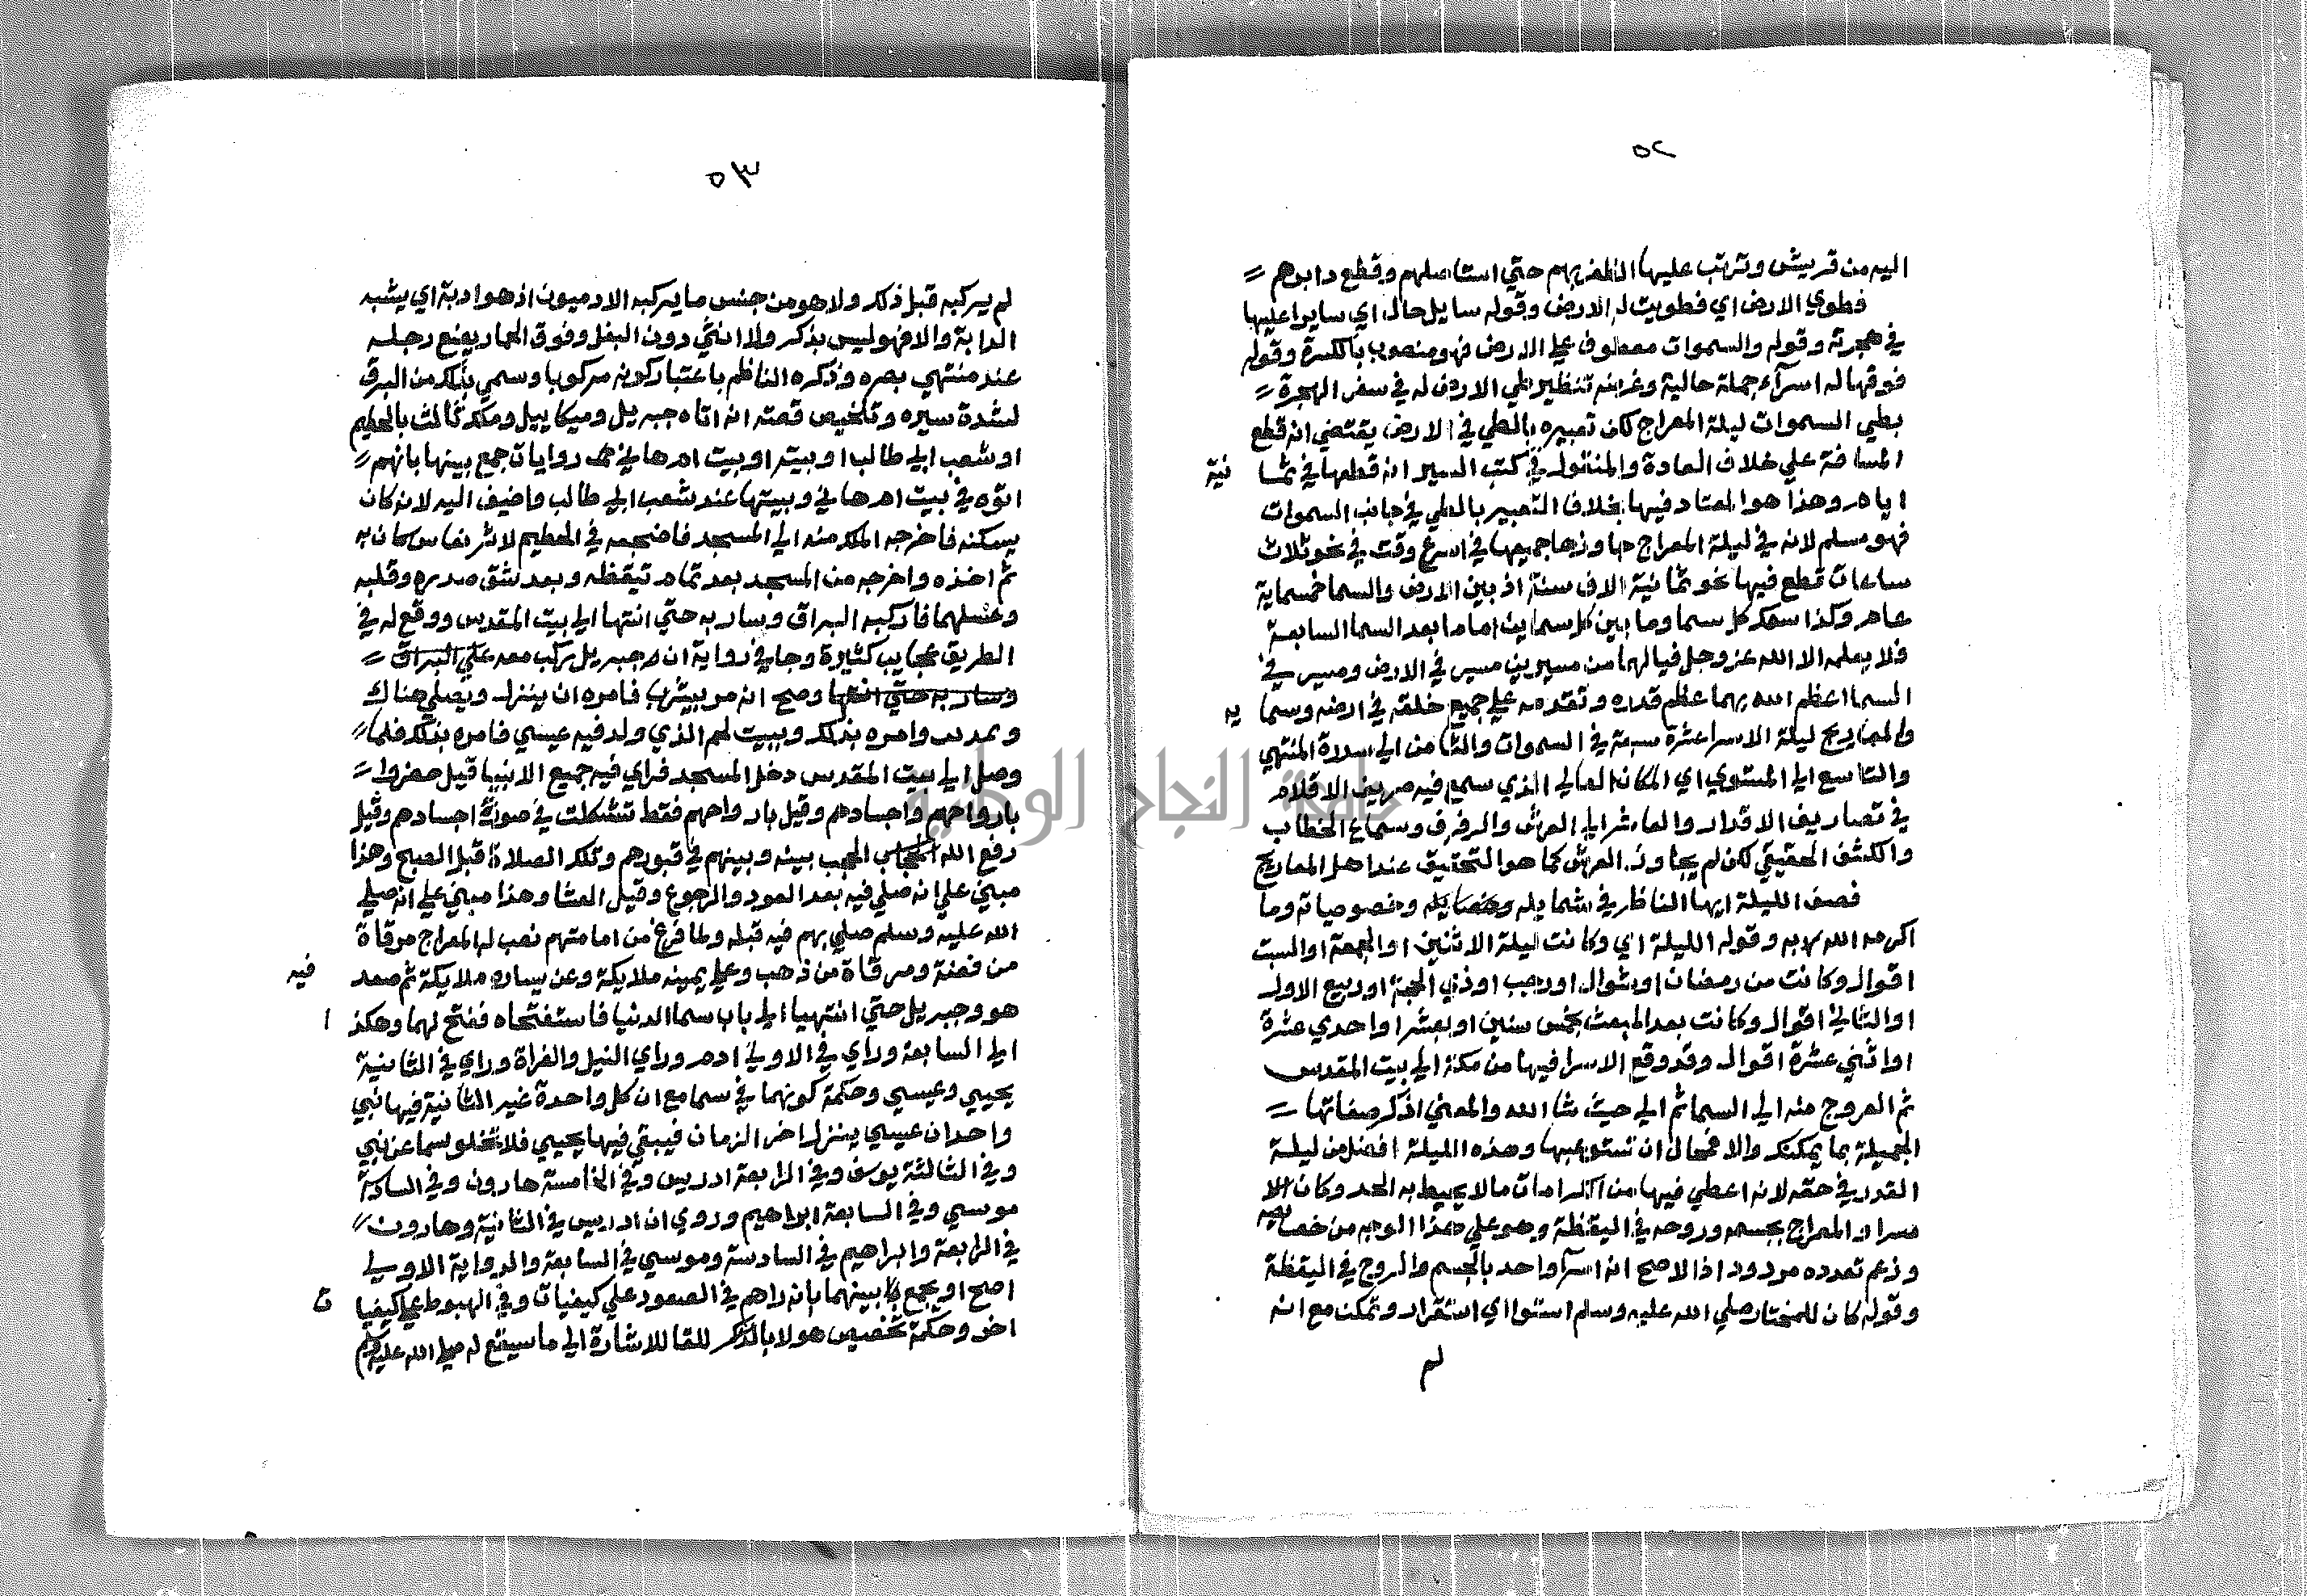 ٥٢
اليه من قريش وترتب عليها الظفر بهم حتي استاصلهم وقطع دابرهم
فطوي الارض اي فطويت له الارض وقوله سايل حال اي سايرا عليها
في هجرته وقوله والسموات معطوف علي الارض فهو منصوب بالكسرة وقوله
فوقها له اسرآء جملة حالية وغرضه تنظير طي الارض له في سفر الهجرة
بطي السموات ليلة المعراج لكن تعبيره بالطي في الارض يقتضي انه قطع
المسافة علي خلاف العادة والمنقول في كتب السير انه قطعها في ثما نية
ايام وهذا هو المعتاد فيها بخلاف التعبير بالطي في جانب السموات
فهو مسلم لانه في ليلة المعراج جاوزها جميعها في اسرع وقت في نحو ثلاث
ساعات قطع فيها نحو ثمانية الاف سنة اذ بين الارض والسما خمسماية
عام وكذا سمك كل سما وما بين كل سماين اما ما بعد السما السابعة
فلا يعلمه الا الله عز وجل فيا لهما من مسيرين مسير في الارض ومسير في
السما اعظم الله بهما عظم قدره وتقدمه علي جميع خلقه في ارضه وسما يه
والمعاريج ليلة الاسرا عشرة سبعة في السموات والثامن الي سدرة المنتهي
والتاسع الي المستوي اي المكان العالي الذي سمع فيه صريف الاقلام
في تصاريف الاقدار والعاشر الي العرش والرفرف وسماع الخطاب
والكشف الحقيقي لكن لم يجاوز العرش كما هو التحقيق عند اهل المعاريج
فصف الليلة ايها الناظر في شمايله وفضايله وخصوصياته وما
اكرمه الله به وقوله الليلة اي وكانت ليلة الاثنين او الجمعة او السبت
اقوال وكانت من رمضان او شوال او رجب او ذي الحجة او ربيع الاول
او الثاني اقوال وكانت بعد المبعث بخمس سنين او بعشر او احدي عشرة
او اثني عشرة اقوال وقد وقع الاسرا فيها من مكة الي بيت المقدس
ثم العروج منه الي السما ثم الي حيث شا الله والمعني اذكر صفاتها
الجميلة بما يمكنك والا فمحال ان تستوعبها وهذه الليلة افضل من ليلة
القدر في حقه لانه اعطي فيها من الكرامات ما لا يحيط به الحد وكان الا
سرا والمعراج بجسمه وروحه في اليقظة وهو علي هذا الوجه من خصايصه
وزعم تعدده مردود اذ الاصح انه اسرآ واحد بالجسم والروح في اليقظة
وقوله كان للمختار صلي الله عليه وسلم استوا اي استقرار وتمكن مع انه
لم
٥٣
لم يركبه قبل ذلك ولا هو من جنس ما يركبه الادميون اذ هو ادبة اي يشبه
الدابة والا فهو ليس بذكر ولا انثي دون البغل وفوق الحمار يضع رجله
عند منتهي بصره وذكره الناظم باعتبار كونه مركوبا وسمي بذلك من البرق
لشدة سيره وتلخيص قصته انه اتاه جبريل وميكاييل وملك ثالث بالحطيم
او شعب ابي طالب او بيته او بيت ام هاني روايات جمع بينها بانهم
اتوه في بيت ام هاني وبيتها عند شعب ابي طالب واضيف اليه لانه كان
يسكنه فاخرجه الملك منه الي المسجد فاضجعه في الحطيم لاثر نعاس كان به
ثم اخذه واخرجه من المسجد بعد تمام تيقظه وبعد شق صدره وقلبه
وغسلهما فاركبه البراق وسار به حتي انتها الي بيت المقدس ووقع له في
الطريق عجايب كثيرة وجا في رواية ان جبريل ركب معه علي البراق
وسار به حتي انتها وصح انه مر بيثرب فامره ان ينزل ويصلي هناك
وبمدين وامره بذلك وببيت لحم الذي ولد فيه عيسي فامره بذلك فلما
وصل الي بيت المقدس دخل المسجد فراي فيه جميع الانبيا قيل حضروا
بارواحهم واجسادهم وقيل بارواحهم فقط تشكلت في صورة اجسادهم وقيل
رفع الله الحجاب الحجب بينه وبينهم في قبورهم وتلك الصلاة قبل الصبح وهذا
مبني علي انه صلي فيه بعد العود والرجوع وقيل العشا وهذا مبني علي انه صلي
الله عليه وسلم صلي بهم فيه قبله ولما فرغ من امامتهم نصب له المعراج مرقاة
من فضة ومرقاة من ذهب وعلي يمينه ملايكة وعن يساره ملايكة ثم صعد فيه
هو وجبريل حتي انتهيا الي باب سما الدنيا فاستفتحاه ففتح لهما وهكذ ا
الي السابعة وراي في الاولي ادم وراي النيل والفراة وراي في الثانية
يحيي وعيسي وحكمة كونهما في سما مع ان كل واحدة غير الثانية فيها نبي
واحد ان عيسي ينزل اخر الزمان فيبقي فيها يحيي فلا تخلو سما عن نبي
وفي الثالثة يوسف وفي الرابعة ادريس وفي الخامسة هارون وفي السادسة
موسي وفي السابعة ابراهيم وروي ان ادريس في الثانية وهارون
في الرابعة وابراهيم في السادسة وموسي في السابعة والرواية الاولي
اصح او يجمع بينهما بانه راهم في الصعود علي كيفيات وفي الهبوط علي كيفيا ت
اخر وحكمة تخصيص هولا بالذكر للقا للاشارة الي ما سيقع له صلي الله عليه وسلم
جامعة النجاح الوطنية